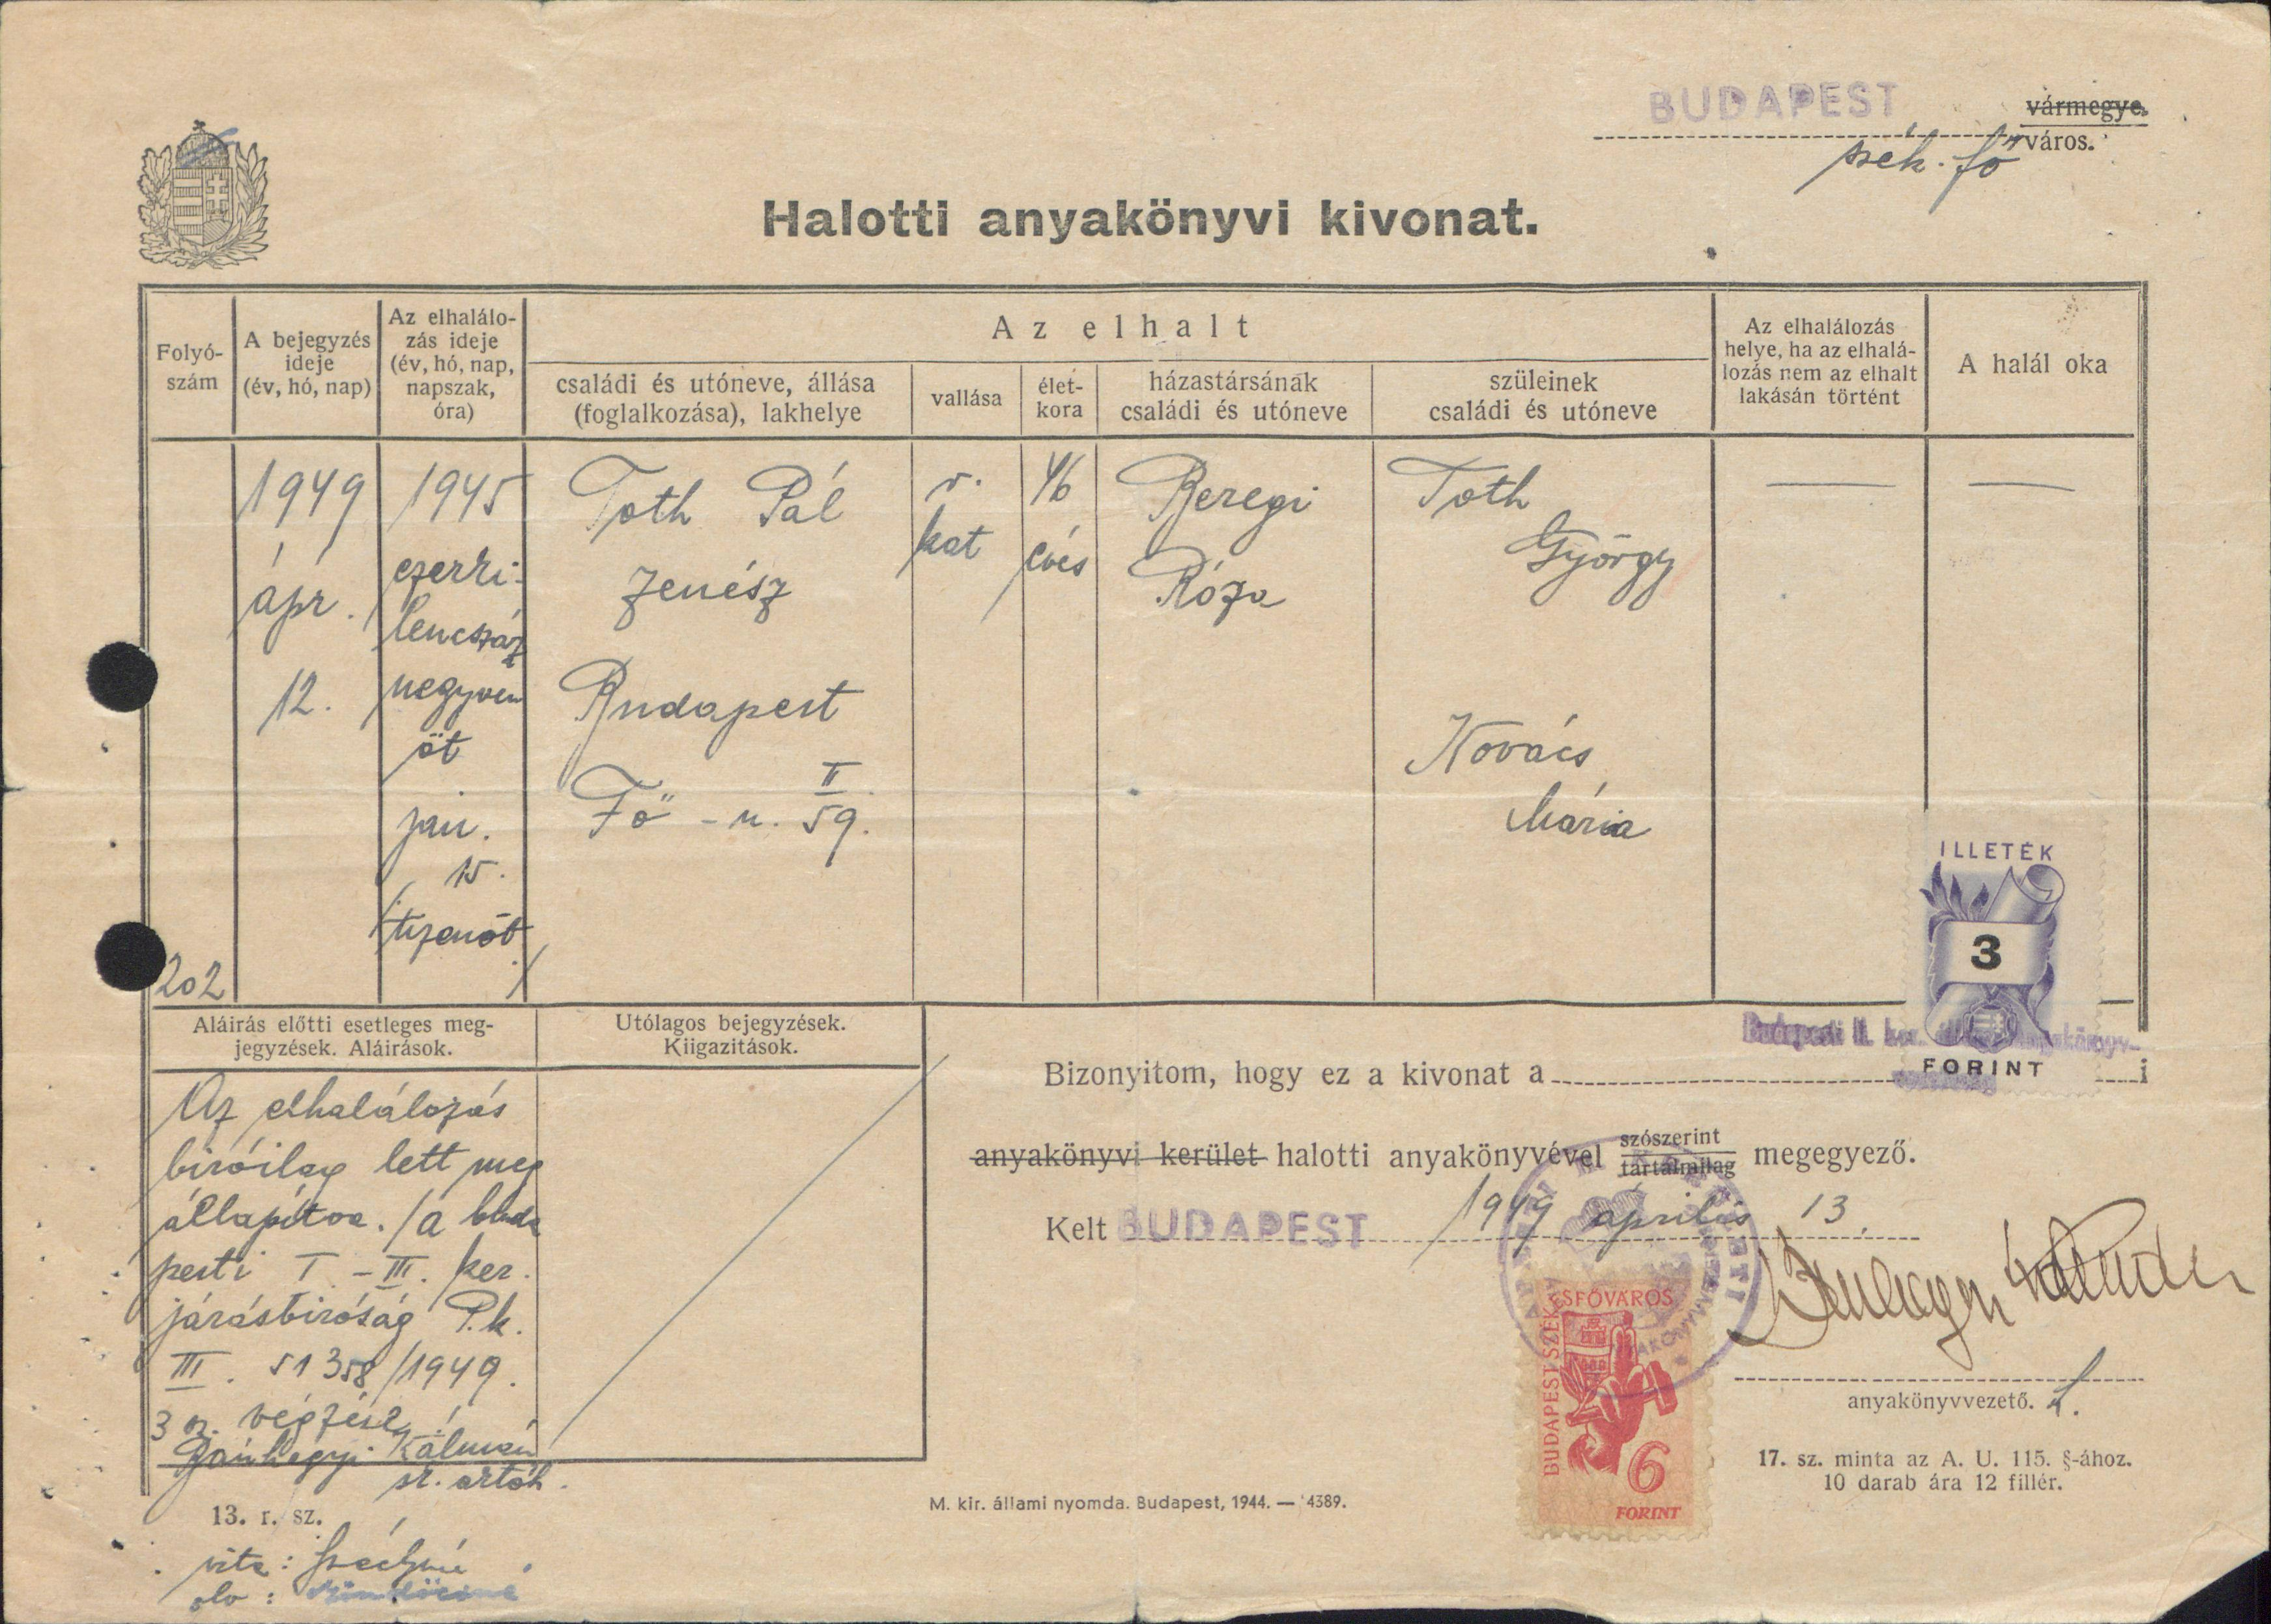 BUDAPEST
vármegye.
szék. fő város.
Halotti anyakönyvi kivonat.
Folyó-
szám
A bejegyzés
ideje
(év, hó, nap)
Az elhalálo-
zás ideje
(év, hó, nap,
napszak,
óra)
Az elhalt
családi és utóneve, állása
(foglalkozása), lakhelye
vallása
élet-
kora
házastársának
családi és utóneve
szüleinek
családi és utóneve
Az elhalálozás
helye, ha az elhalá-
lozás nem az elhalt
lakásán történt
A halál oka
202
1949
ápr.
12.
1945
ezerki-
lencszáz
negyven
öt
jan.
15.
tizenöt
Toth Pál
zenész
Budapest
Fő - u. II
59.
r.
kat
46
éves
Beregi
Róza
Toth
György
Kovács
Mária
ILLETÉK
3
FORINT
Aláirás előtti esetleges meg-
jegyzések. Aláirások.
Utólagos bejegyzések.
Kiigazitások.
Az elhalálozás
biróilag lett meg
állapitva. /a buda
pesti I - III. ker.
járásbiróság P.k.
III. 51358/1949.
3 sz. végzése/
Kálmán
13. r. sz.
Budapesti II. ker.
Bizonyitom, hogy ez a kivonat a i
anyakönyvi kerület halotti anyakönyvével szószerint
tartalmilag megegyező.
Kelt BUDAPEST 1949 április 13.
BUDAPEST SZÉKESFŐVÁROS
6
FORINT
anyakönyvvezető. h.
17. sz. minta az A. U. 115. §-ához.
10 darab ára 12 fillér.
M. kir. állami nyomda. Budapest, 1944. — 4389.
olv :